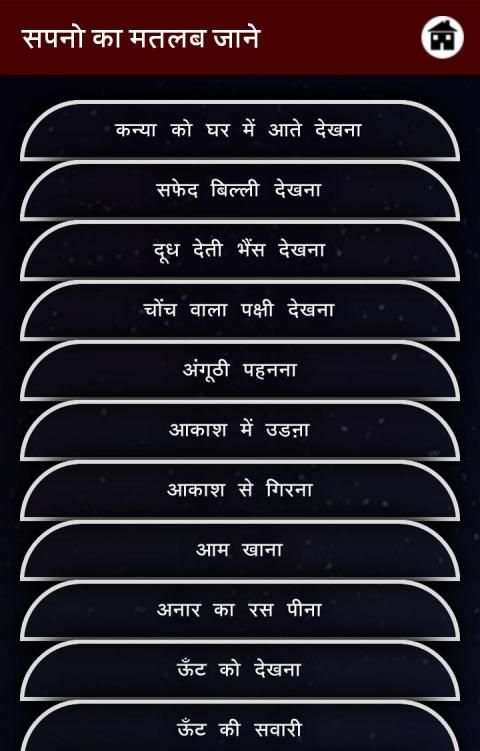 सपनो का मतलब जाने
कन्या को घर में आते देखना
सफेद बिल्ली देखना
दूध देती भैंस देखना
चोंच वाला पक्षी देखना
अंगूठी पहनना
आकाश में उडऩा
आकाश से गिरना
आम खाना
अनार का रस पीना
ऊँट को देखना
ऊँट की सवारी